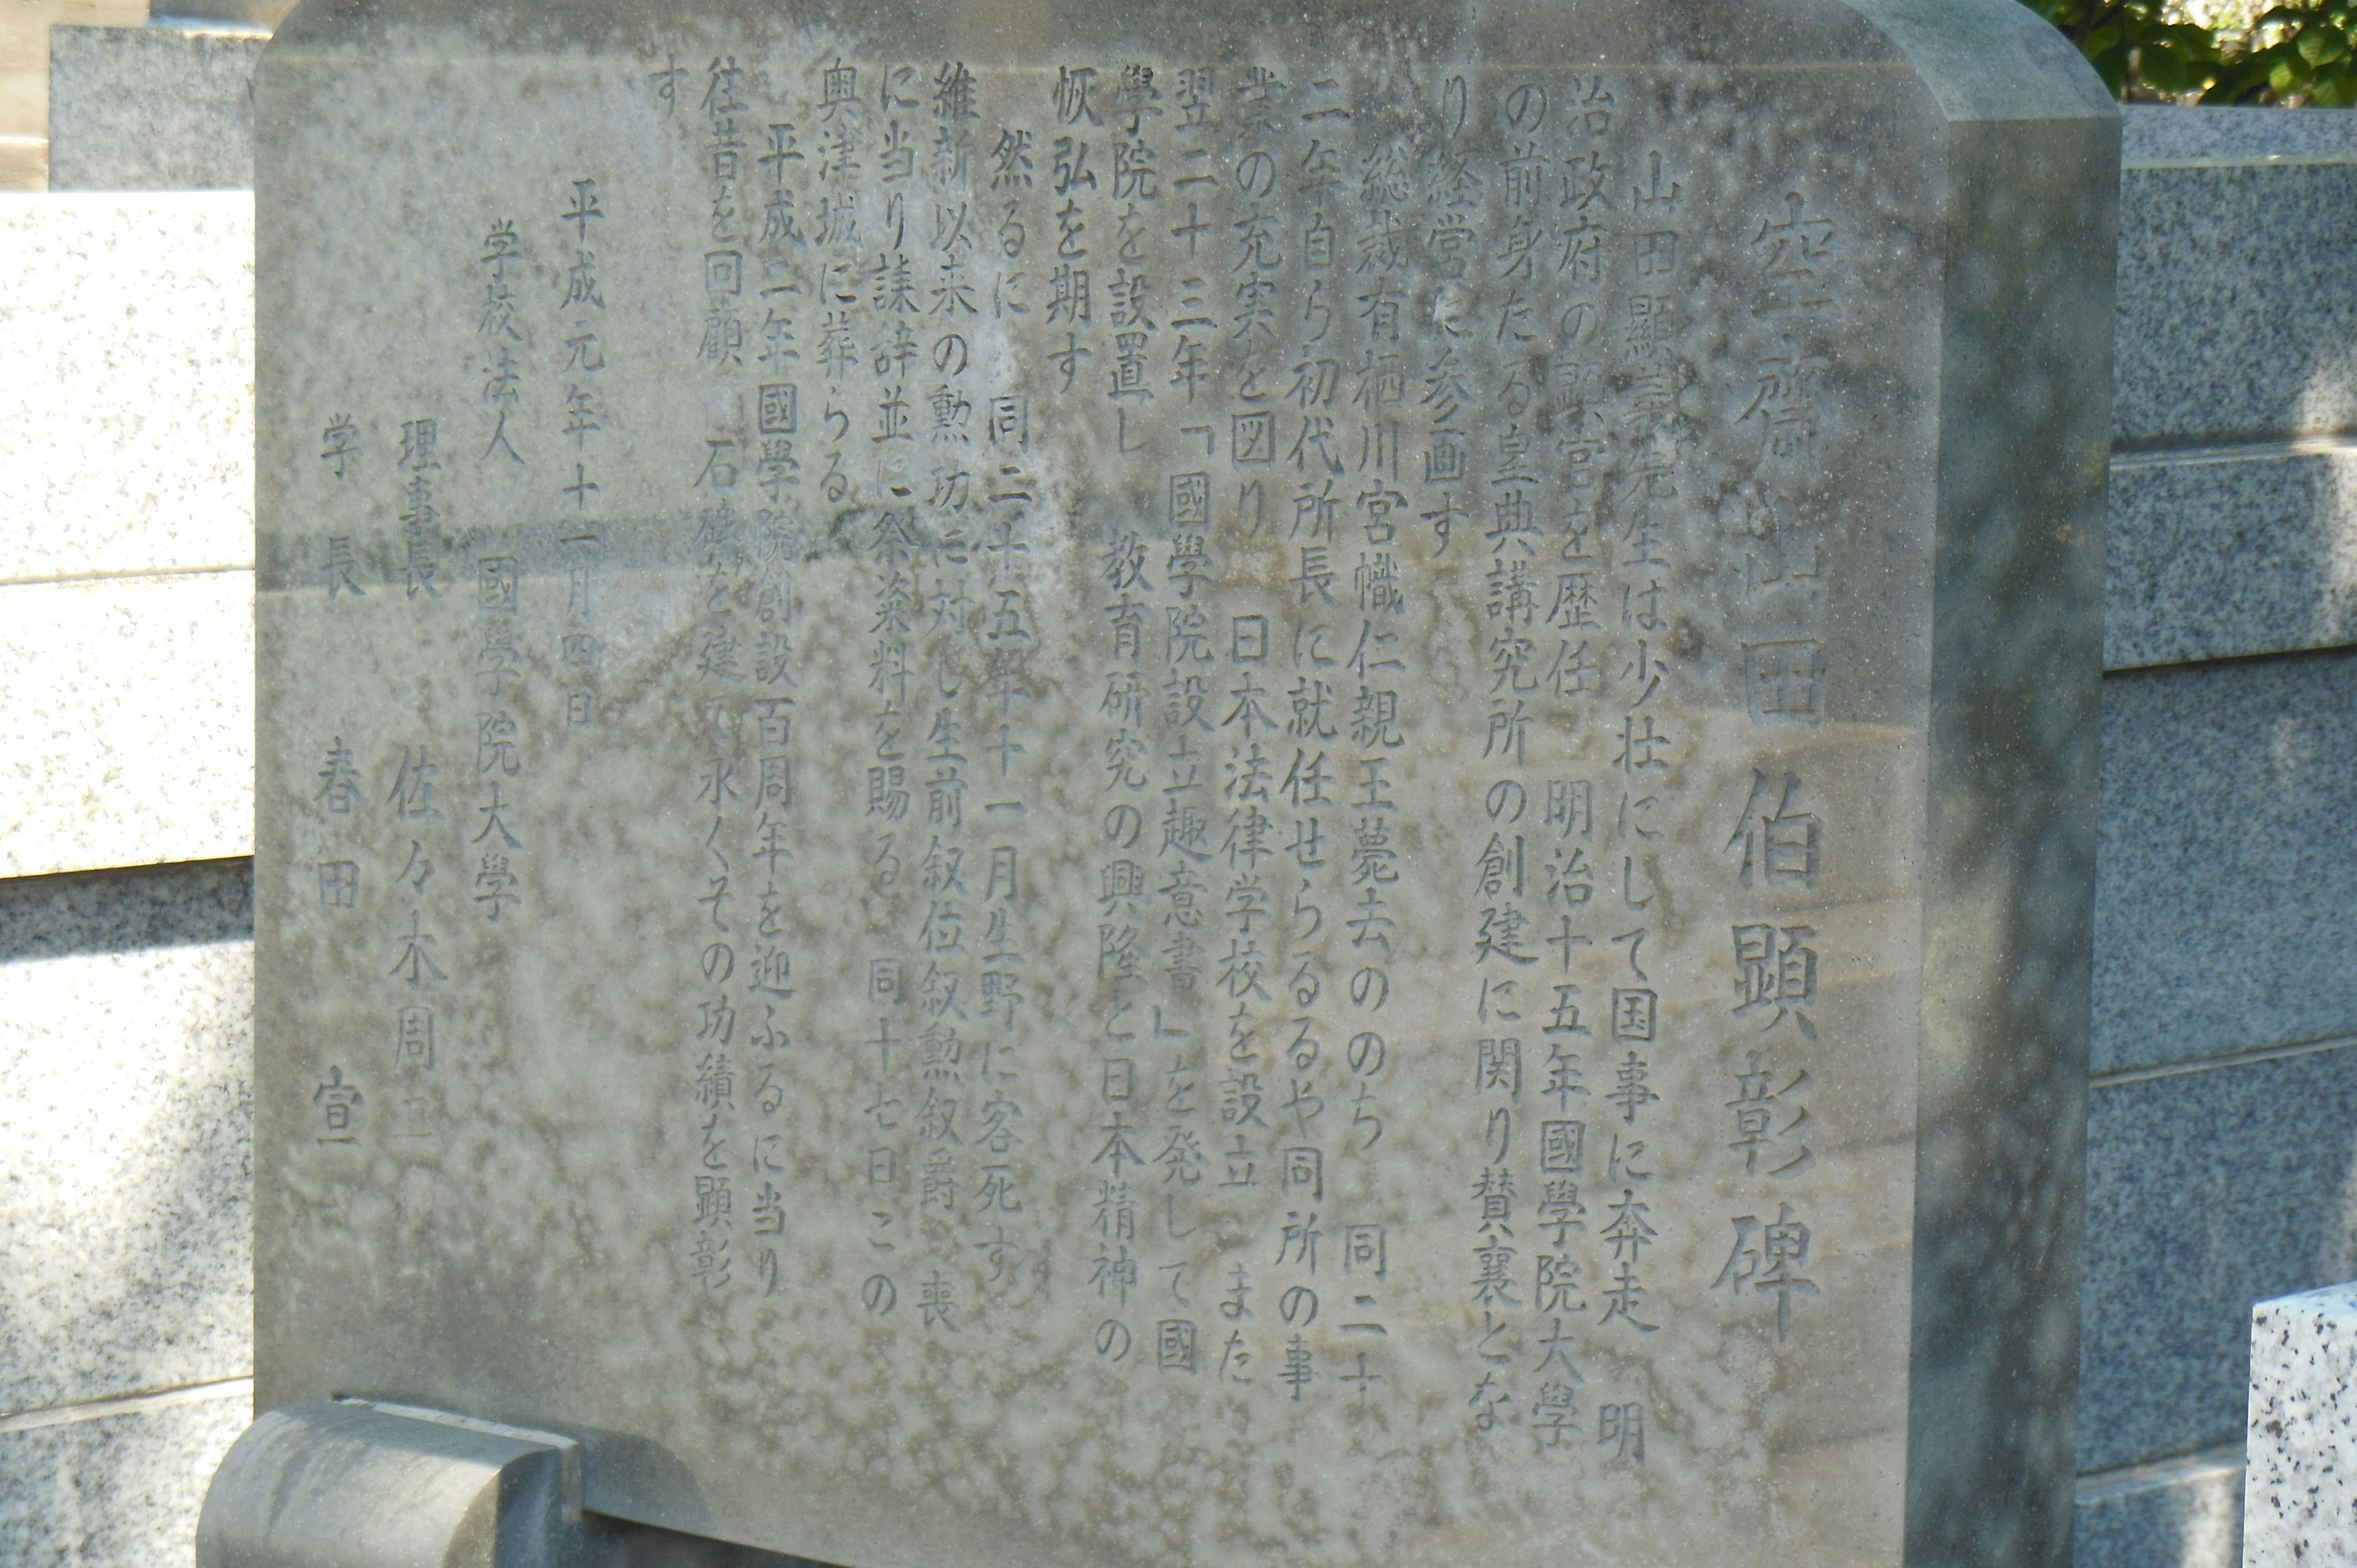 空齋山田伯顕彰碑
山田顯義先生は少壮にして国事に奔走 明
治政府の顯官を歴任 明治十五年國學院大學
の前身たる皇典講究所の創建に関り賛襄とな
り経営に参画す
総裁有栖川宮幟仁親王薨去ののち 同二十
二年自ら初代所長に就任せらるるや同所の事
業の充実を図り 日本法律学校を設立 また
翌二十三年「國學院設立趣意書」を発して國
學院を設置し 教育研究の興隆と日本精神の
恢弘を期す
然るに 同二十五年十一月生野に客死す
維新以来の勲功に対し生前叙位叙勲叙爵 喪
に当り誄辞並に祭粢料を賜る 同十七日この
奥津城に葬らる
平成二年國學院創設百周年を迎ふるに当り
往昔を回顧 石碑を建て永くその功績を顕彰
す
平成元年十一月四日
学校法人 國學院大學
理事長 佐々木周二
学長 春田宣